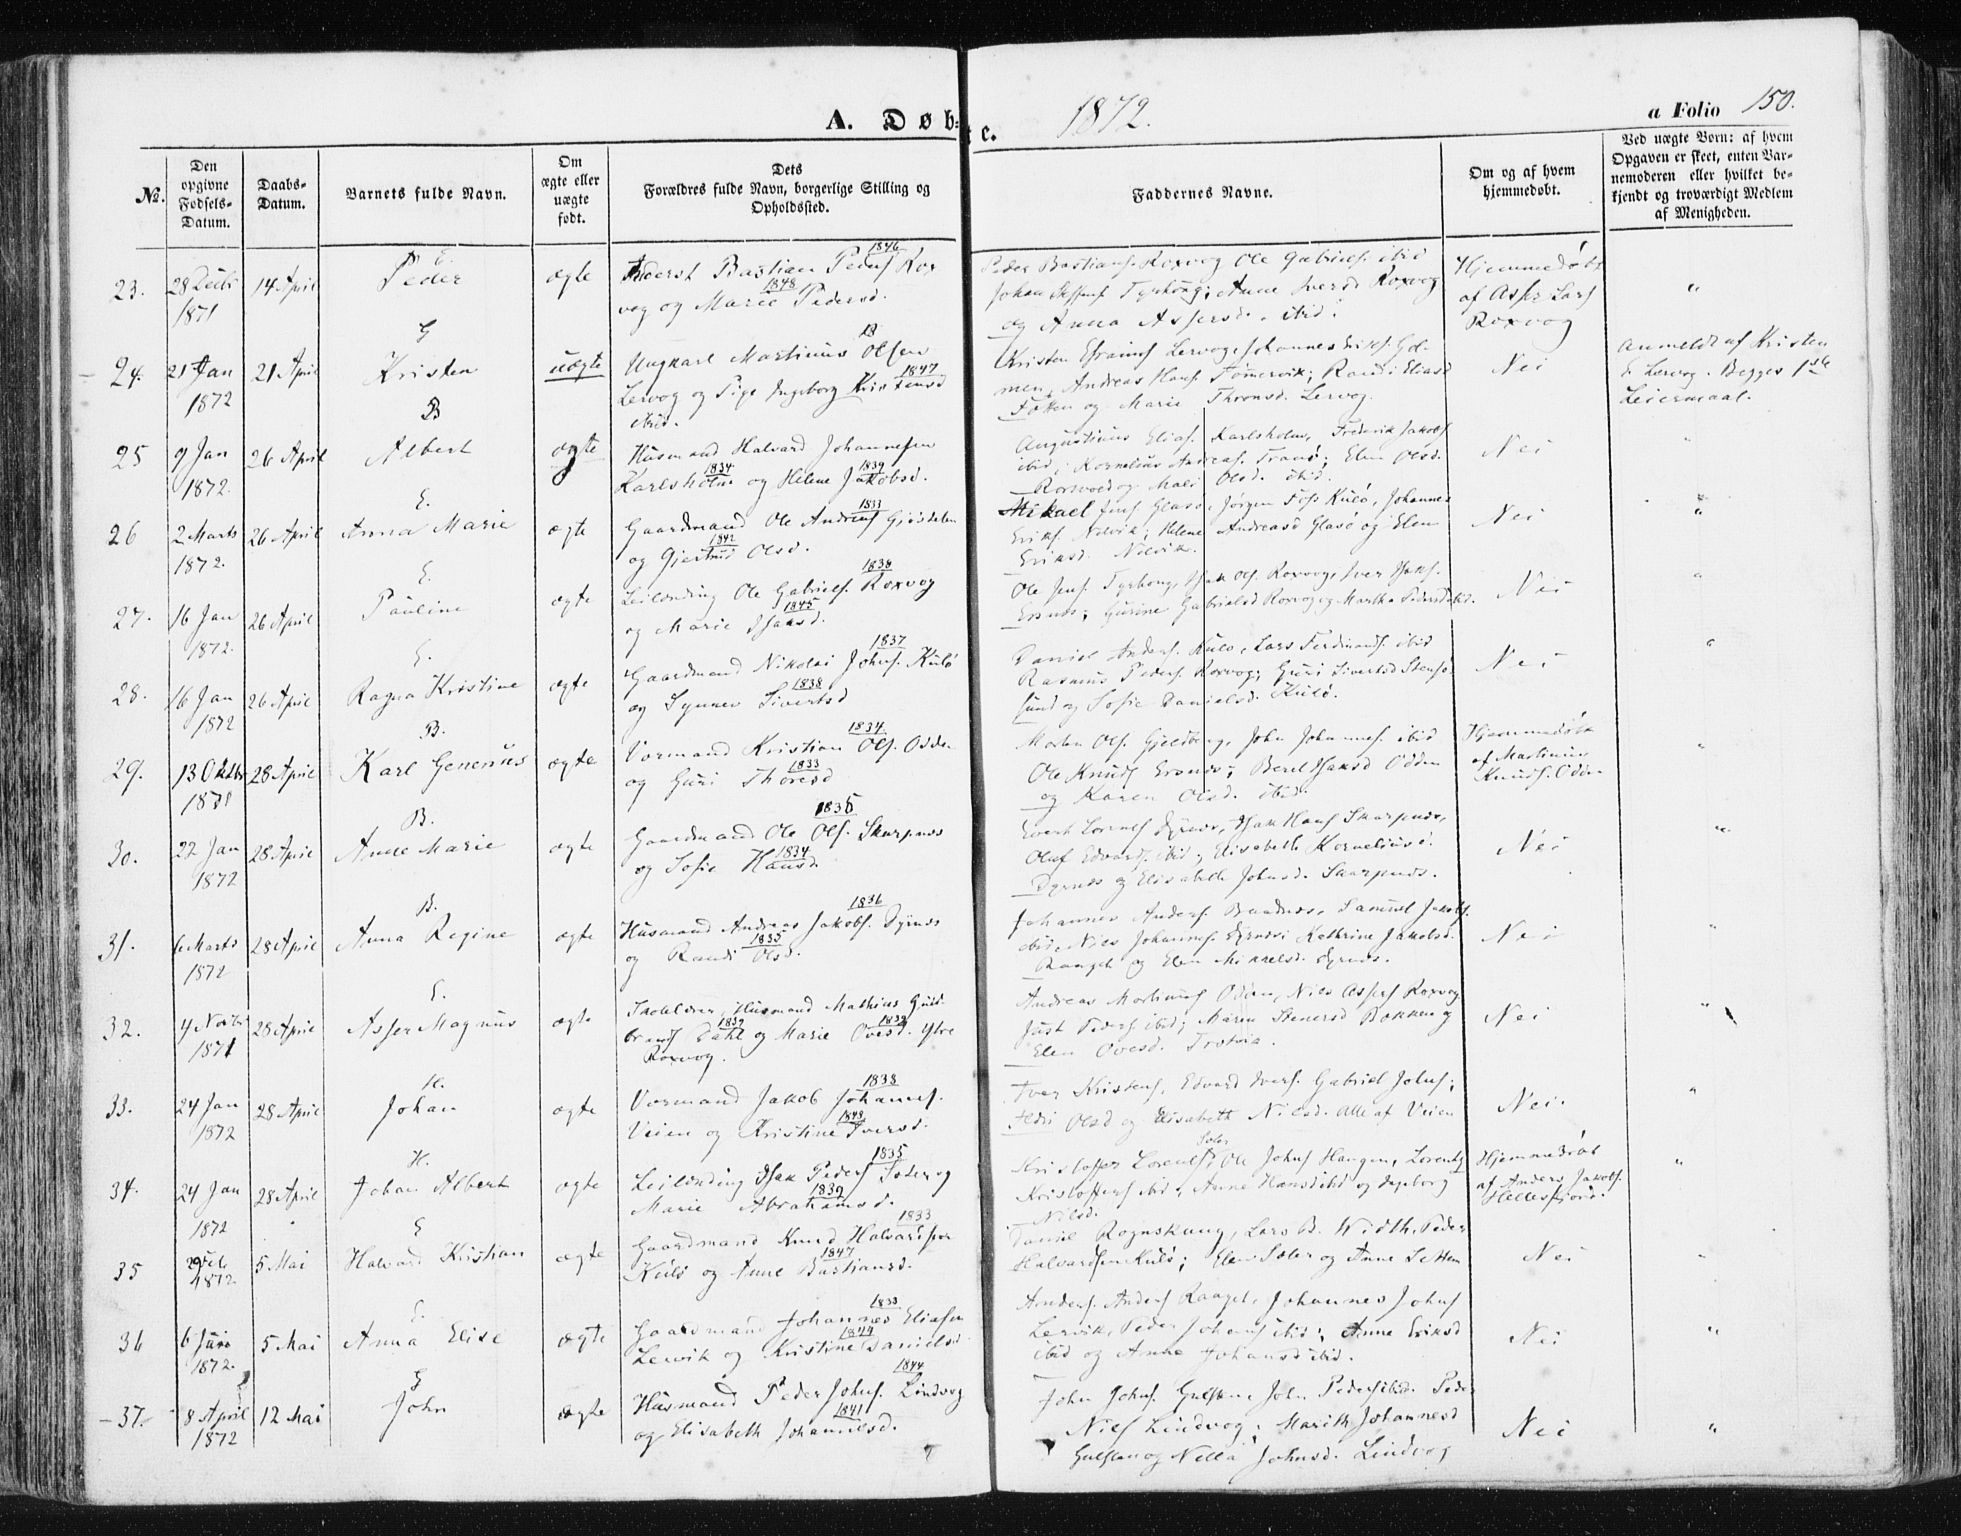 A. Døb-
te. 1872.
a Folio 150.
№.
Den opgivne Fødsels-Datum.
Daabs-Datum.
Barnets fulde Navn.
Om ægte eller uægte født.
Dets Forældres fulde Navn, borgerlige Stilling og Opholdssted.
Faddernes Navne.
Om og af hvem hjemmedøbt.
Ved uægte Børn: af hvem Opgaven er skeet, enten Barnemoderen eller hvilket bekjendt og troværdigt Medlem af Menigheden.
1846
23. 28 1871 14 April Peder ægte Bastian Peders Rox
1848
vog og Marie Pedersd.
Peder Bastians. Roxvog Ole Gabriels. ibid
og Anna Assersd. ibid.
Hjemmedøbt
af Asser Lars
Roxvog
G
B
24. 21 Jan 1872 21 April Kristen uægte Ungkarl Martinus Olsen
1847
Lervog og Pige Ingeborg Kristensd
ibid.
Kristen Lervog, Johannes Eriks.
Andreas Hans. Tømervik; Randi Eliasd
og Marie Lervog.
Nei
Anmeldt af Kristen
Lervog. Begges 1ste
Leiermaal.
B
25 9 Jan 1872. 26 April Albert ægte Husmand Halvard Johannesen
1834 1839
Karlsholm og Helene Jakobsd.
Augustinus Elias. Karlsholm, Frederik Jakobs
ibid; Kornelius Andreas. Elen Olsd.
og Mali Olsd. ibid.
Nei
E.
1833
26 2 Marts 1872. 26 April Anna Marie ægte Gaardmand Ole Andreas
1842
og Gjertrud Olsd.
Mikael Jens. Glasø, Jørgen Kulø, Johannes
Eriks. Nelvik; Helene Andreasd Glasø og Elen
Eriksd. Nelvik.
Nei
E.
1838
27. 16 Jan 1872. 26 April Pauline ægte Leilænding Ole Gabriels. Roxvog
1845
og Marie Isaksd.
Ole Jens. Isak Ols. Roxvog, Iver Isaks.
Gurine Gabrielsd Roxvog og Martha Pedersd ibid.
Nei
E.
1837
28. 16 Jan 1872 26 April Ragna Kristine ægte Gaardmand Nikolai Johns. Kulø
1838
og Synnev Sivertsd
Daniel Anders. Kulø, Lars Ferdinands. ibid
Rasmus Peders. Roxvog; Guri Sivertsd
sund og Sofie Danielsd. Kulø.
Nei
B.
1834
29. 13 Oktbr 1871 28 April Karl Generius ægte Vormand Kristian Ols. Odden
1833
og Guri Thoresd
Morten Ols. Gjeldberg, John Johannes. ibid
Ole Knuds Isaksd Odden
og Karen Olsd. ibid.
Hjemmedøbt
af Martinus
Knuds. Odden
B.
1835
30. 22 Jan 1872 28 April Anne Marie ægte Gaardmand Ole Ols. Skarpnes
1834
og Sofie Hansd.
Evert Lorents Dyrnes, Isak Hans Skarpnes,
Oluf Edvards. ibid; Elisabeth Korneliusd.
Dyrnes og Elisabeth Johnsd. Skarpnes.
Nei
B.
1836
31. 6 Marts 1872 28 April Anna Regine ægte Husmand Andreas Jakobs. Dyrnes
1835
og Randi Olsd.
Johannes Anders. Samuel Jakobs.
ibid, Nils Johannes. Dyrnes; Kathrine Jakobsd.
og Elen Mikkelsd. Dyrnes.
Nei
E.
32. 4 Novbr 1871 28 April Asser Magnus ægte Skolelærer, Husmand Mathias Guld-
1839 1839
brands Dahl og Marie Ovesd. Ytre
Roxvog.
Andreas Martinus Odden, Nils Assers Roxvog
Just Peders ibid; Maren Stenersd Bakken og
Elen Ovesd.
Nei
H.
1838
33. 24 Jan 1872 28 April Johan ægte Vormand Jakob Johannes.
1843
Veien og Kristine Iversd.
Iver Kristens, Edvard Ivers. Gabriel Johns;
Olsd og Elisabeth Nilsd. Alle af Veien
Nei.
H.
1835
34. 24 Jan 1872 28 April Johan Albert ægte Leilænding Isak Peders Soler og
1839
Marie Abrahamsd.
Soler
Kristoffer Lorents, Ole Johns Haugen, Lorents
Kristoffers ibid; Anne Hansd ibid og Ingeborg
Nilsd.
Hjemmedøbt
af Anders Jakobs.
Hellesfjord.
E
1833
35 29 Feb. 1872. 5 Mai Halvard Kristian ægte Gaardmand Knud Halvardsen
1847
Kulø og Anne Bastiansd.
Daniel Rognskaug, Lars B. Width, Peder
Halvardsen Kulø; Elen Soler og Anne Setten
Nei
E.
1833
36 6 1872. 5 Mai Anna Elise ægte Gaardmand Johannes Eliasen
1844
Lervik og Kristine Danielsd
Anders. Anders Raaget, Johannes Johns
Lervik, Peder Johans ibid; Anne Eriksd
ibid og Anne Johansd ibid.
Nei
G
1844
37. 8 April 1872 12 Mai John ægte Husmand Peder Johns. Lindvog
1841
og Elisabeth Johannesd.
John Johns. Gulsten, John Peders ibid. Peder
Nils Lindvog; Marith Johannesd
Gulsten og Nella Johnsd. Lindvog
Nei